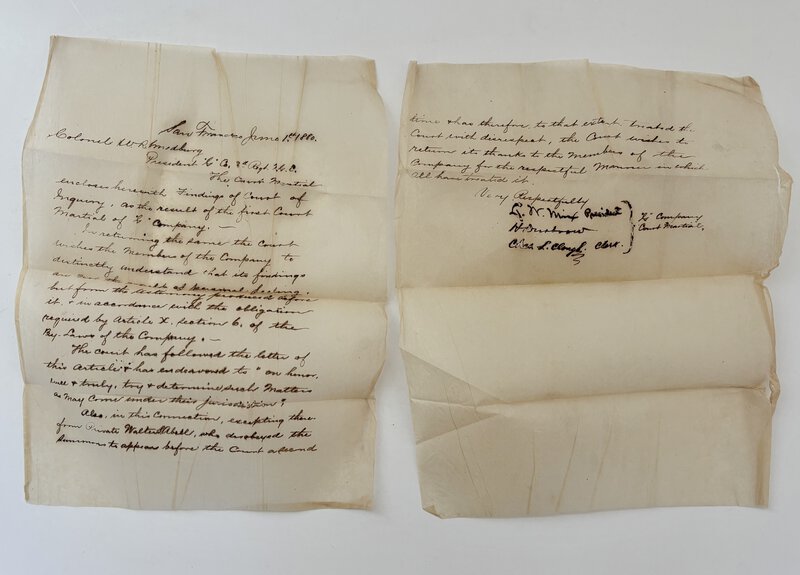 San Francisco June 1st 1880.
Colonel W R Smedberg
President "C" Co, 2d Regt N.G.C.
The Court Martial
encloses herewith Findings of Court of
Inquiry, as the result of the first Court
Martial of "C" Company. —
In returning the same the Court
wishes the Members of the Company to
distinctly understand that its findings
are not the result of personal feeling,
but from the testimony produced before
it & in accordance with the obligation
required by Article X, section 6, of the
By-Laws of the Company. —
The court has followed the letter of
this Article & has endeavored to "on honor,
well & truly, try & determine such Matters
as may come under their jurisdiction".
Also, in this Connection, excepting there-
from Private Walter Abell, who disobeyed the
Summons to appear before the Court a second
time & has therefore, to that extent, treated the
Court with disrespect, the Court wishes to
return its thanks to the Members of the
Company for the respectful Manner in which
all have treated it
Very Respectfully
President
"C" Company
Court Martial.
Chas L. Clough. Clerk.